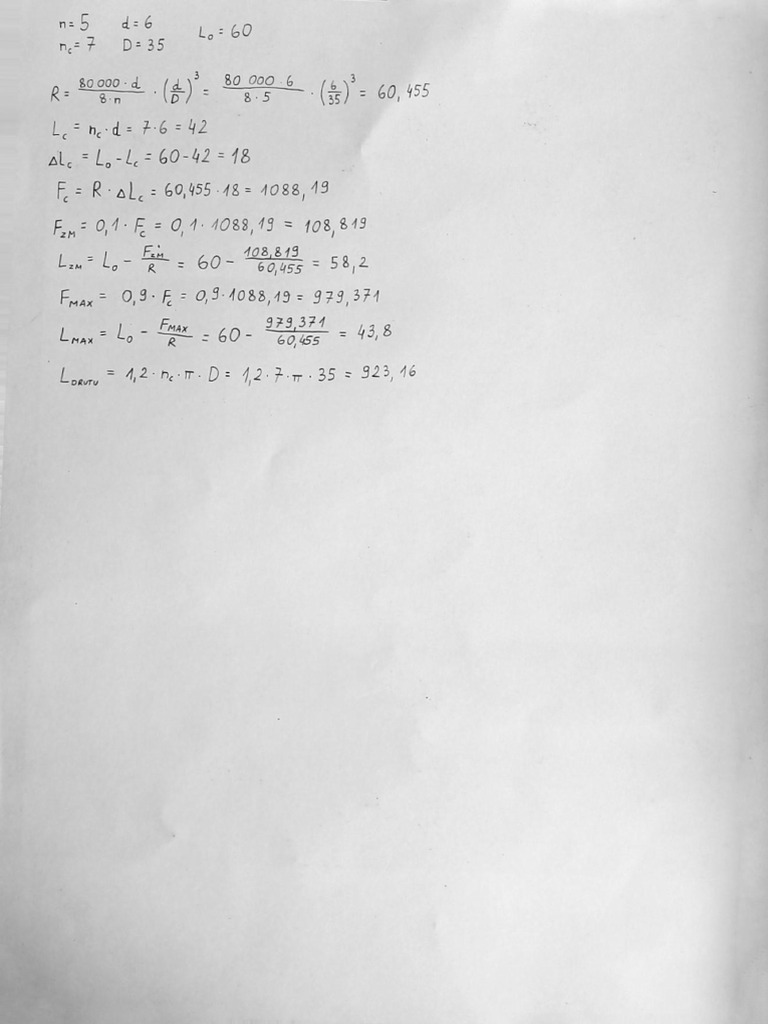 n=5 d=6 L₀=60
n_c=7 D=35
R = \frac{80 000 · d}{8·n} · (\frac{d}{D})³ = \frac{80 000 · 6}{8·5} · (\frac{6}{35})³ = 60,455
L_c = n_c · d = 7·6 = 42
ΔL_c = L₀ - L_c = 60-42 = 18
F_c = R · ΔL_c = 60,455 · 18 = 1088,19
F_ZM = 0,1 · F_c = 0,1 · 1088,19 = 108,819
L_ZM = L₀ - \frac{F_ZM}{R} = 60 - \frac{108,819}{60,455} = 58,2
F_MAX = 0,9 · F_c = 0,9 · 1088,19 = 979,371
L_MAX = L₀ - \frac{F_MAX}{R} = 60 - \frac{979,371}{60,455} = 43,8
L_DRUTU = 1,2 · n_c · π · D = 1,2 · 7 · π · 35 = 923,16